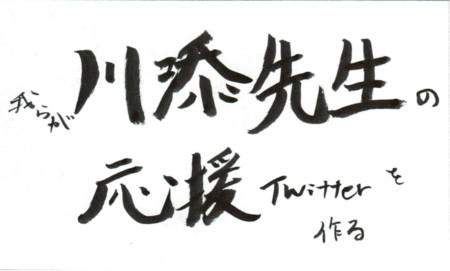 我らが川添先生の
応援Twitterを
作る